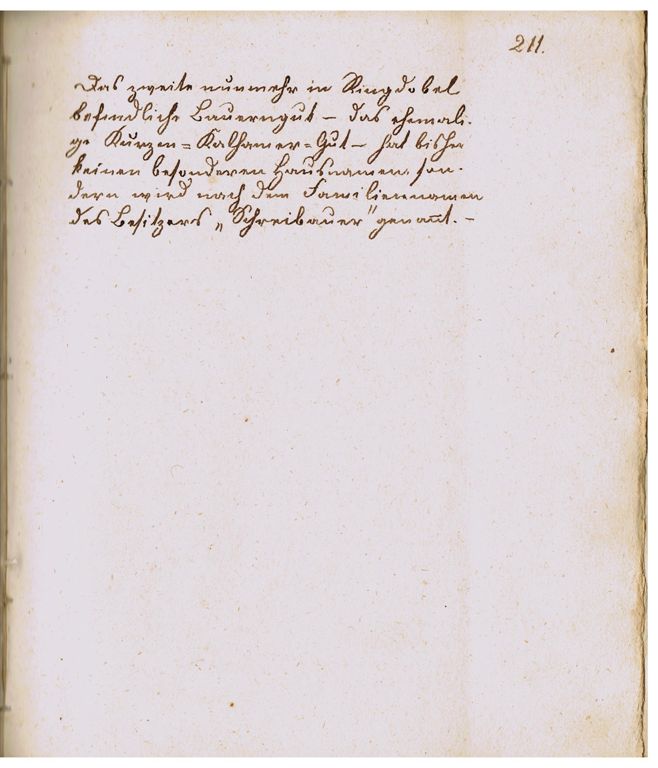 211.
Das zweite nunmehr in Ringdobel
befindliche Bauerngut – das ehemali-
ge Kurzen=Kalhamer=Gut – hat bisher
keinen besonderen Hausnamen, son-
dern wird nach dem Familiennamen
des Besitzers „Schreibauer" genan̄t. –